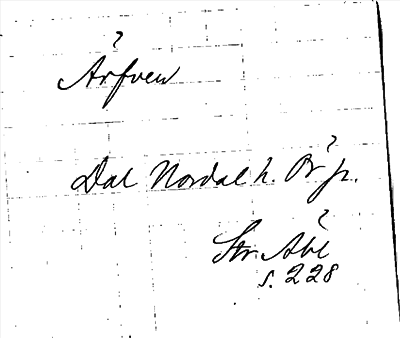 ?
Årfven
?
Dal Nordal h. Ör p.
?
Str.
s. 228